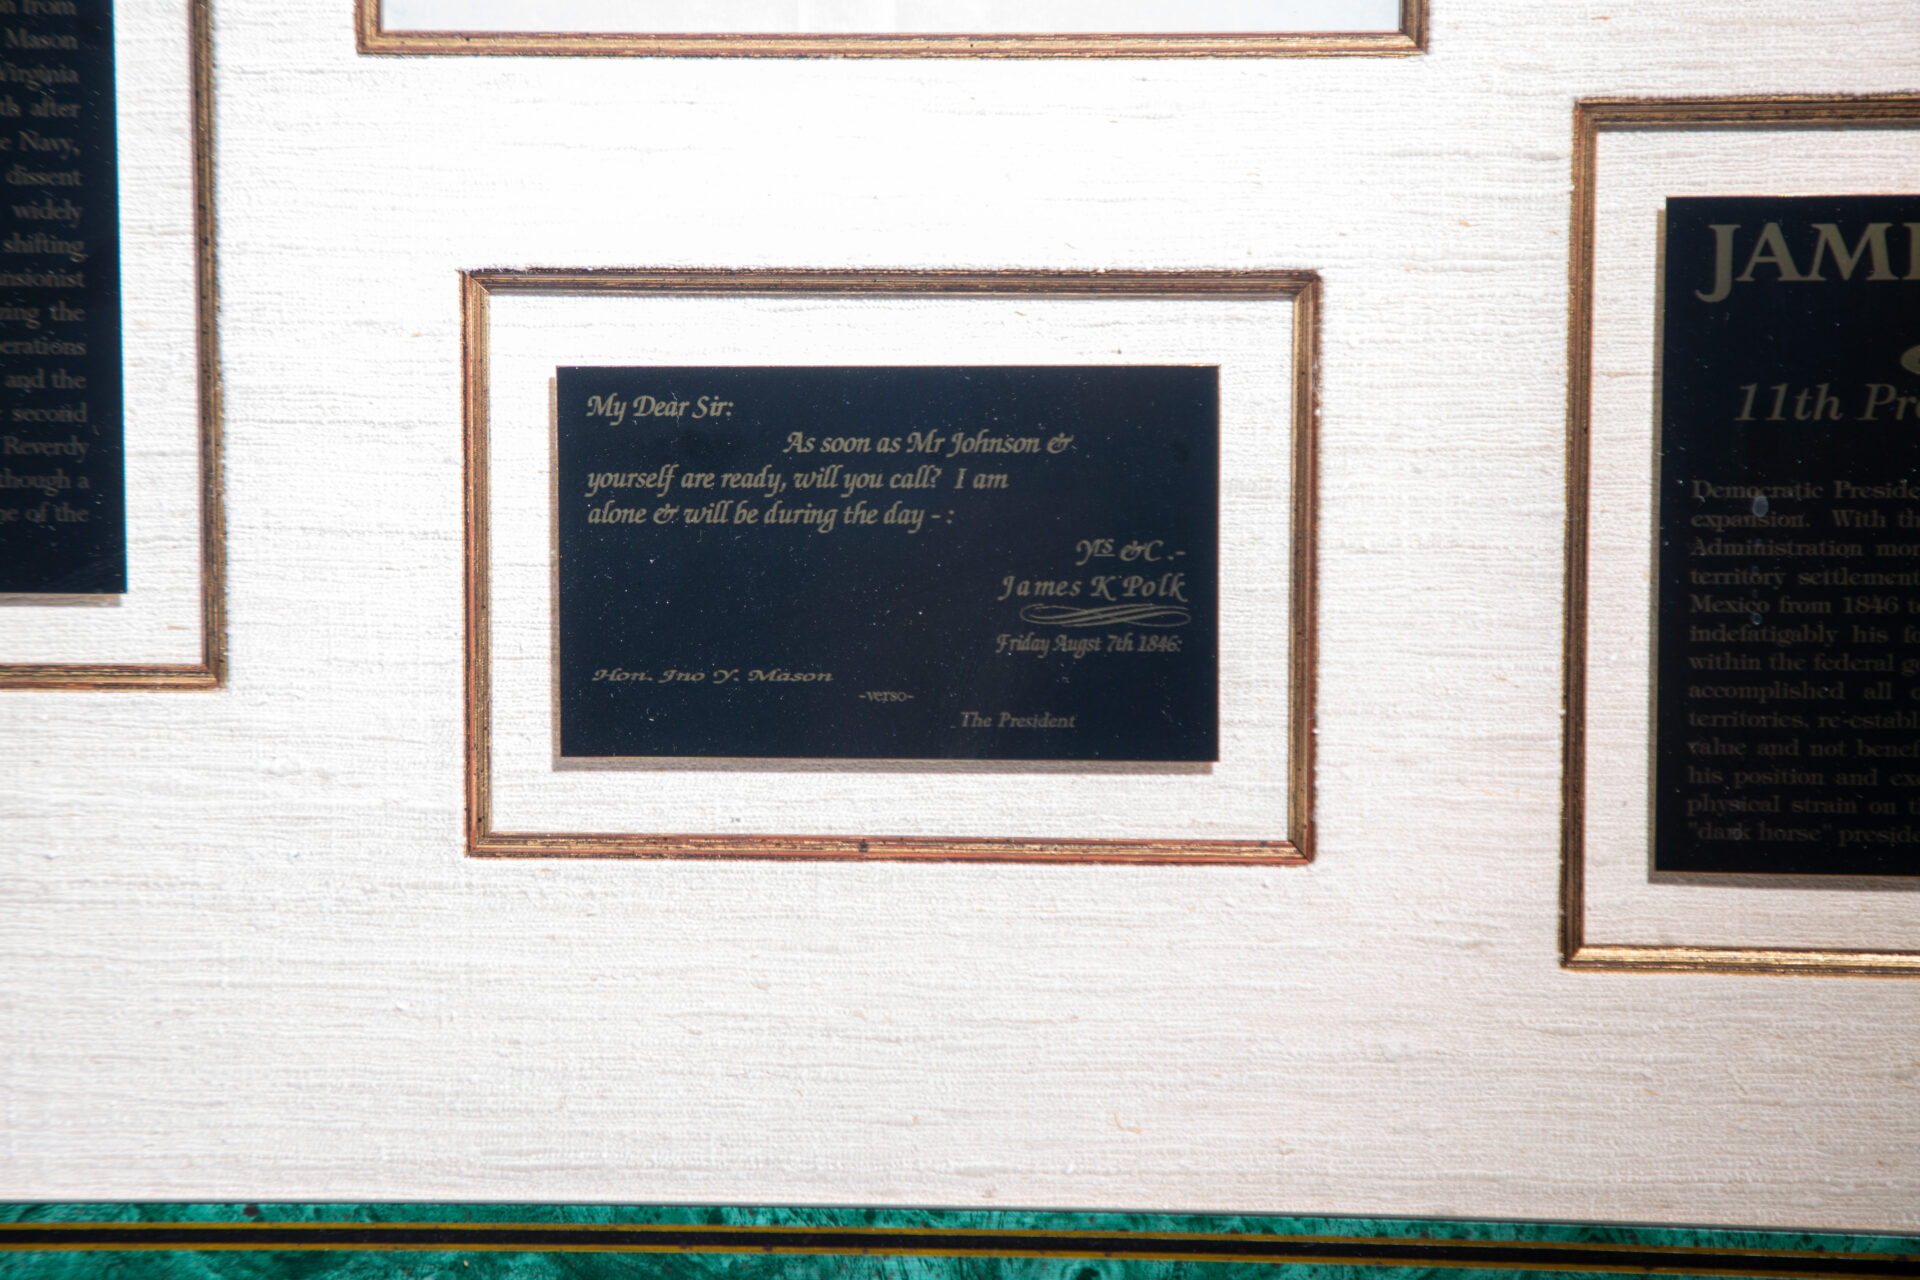 from
Mason
Virginia
after
Navy,
dissent
widely
shifting,
the
and the
second
Reverdy
though a
of the
My Dear Sir:
As soon as Mr Johnson &
yourself are ready, will you call? I am
alone & will be during the day - :
Yrs &C .-
James K Polk
Friday Augst 7th 1846:
Hon. Jno Y. Mason
-verso-
The President
JAME
11th Pre
Democratic Preside
expansion. With th
Administration mor
territory settlement
Mexico from 1846 t
indefatigably his fo
within the federal g
accomplished all o
territories, re-establ
value and not benef
his position and exe
physical strain on t
"dark horse" preside